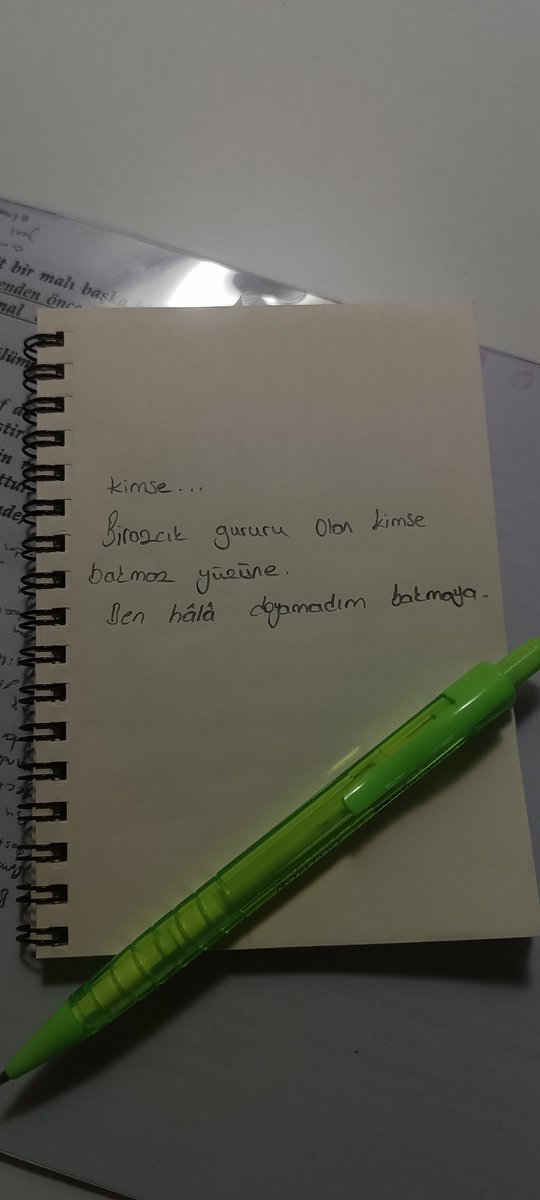 t bir malı başka
enden önce
mal
ölüm
kimse...
Birazcık gururu olan kimse
bakmaz yüzüne.
Ben hâlâ doyamadım bakmaya.